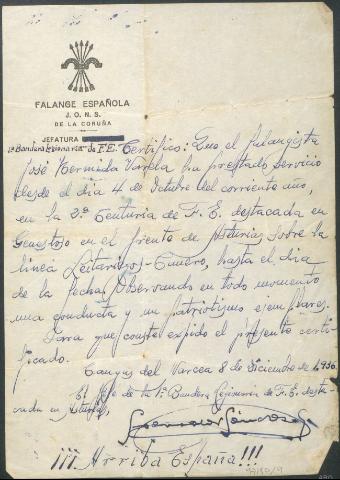 FALANGE ESPAÑOLA
J. O. N. S.
DE LA CORUÑA
JEFATURA
1ª Bandera de F.E. Certifico: Que el falangista
José Hermida Varela ha prestado servicio
desde el dia 4 de Octubre del corriente año,
en la 2ª Centuria de F. E. destacada en
Genestoso en el frente de Asturias, sobre la
linea Leitariegos-Cunero, hasta el dia
de la fecha, observando en todo momento
una conducta y un patriotismo ejemplares.
Para que conste expido el presente certi-
ficado.
Cangas del Narcea 8 de Diciembre de 1.936.
El Jefe de la 1ª Bandera Legionaria de F.E. desta-
cada en Asturias,
¡¡¡ Arriba España!!!